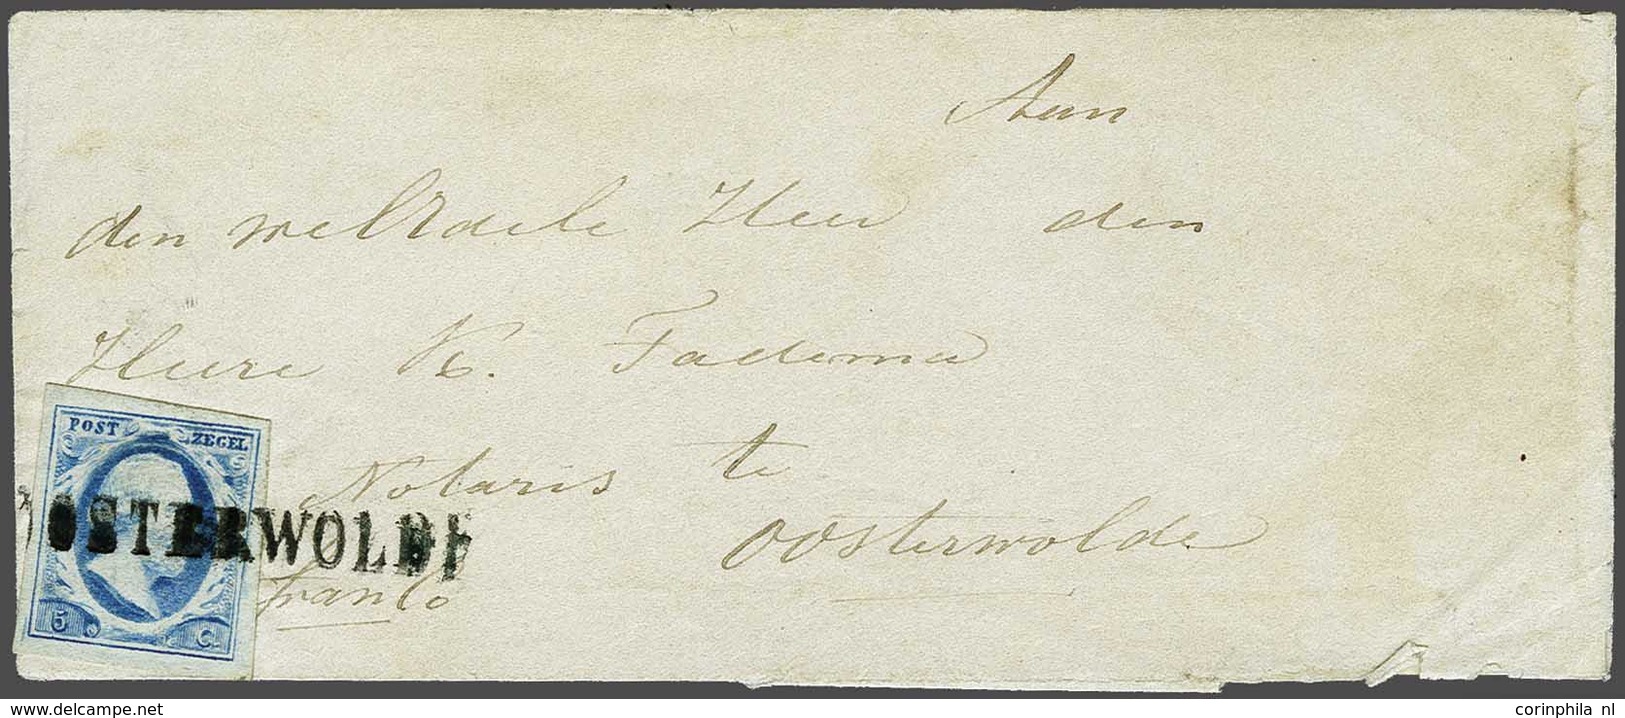 Aan
den welEdele Heer den
Heere K. Fadema
POST ZEGEL
Notaris te
OOSTERWOLDE
Oosterwolde
franco
5 C.
delcampe.net
corinphila nl